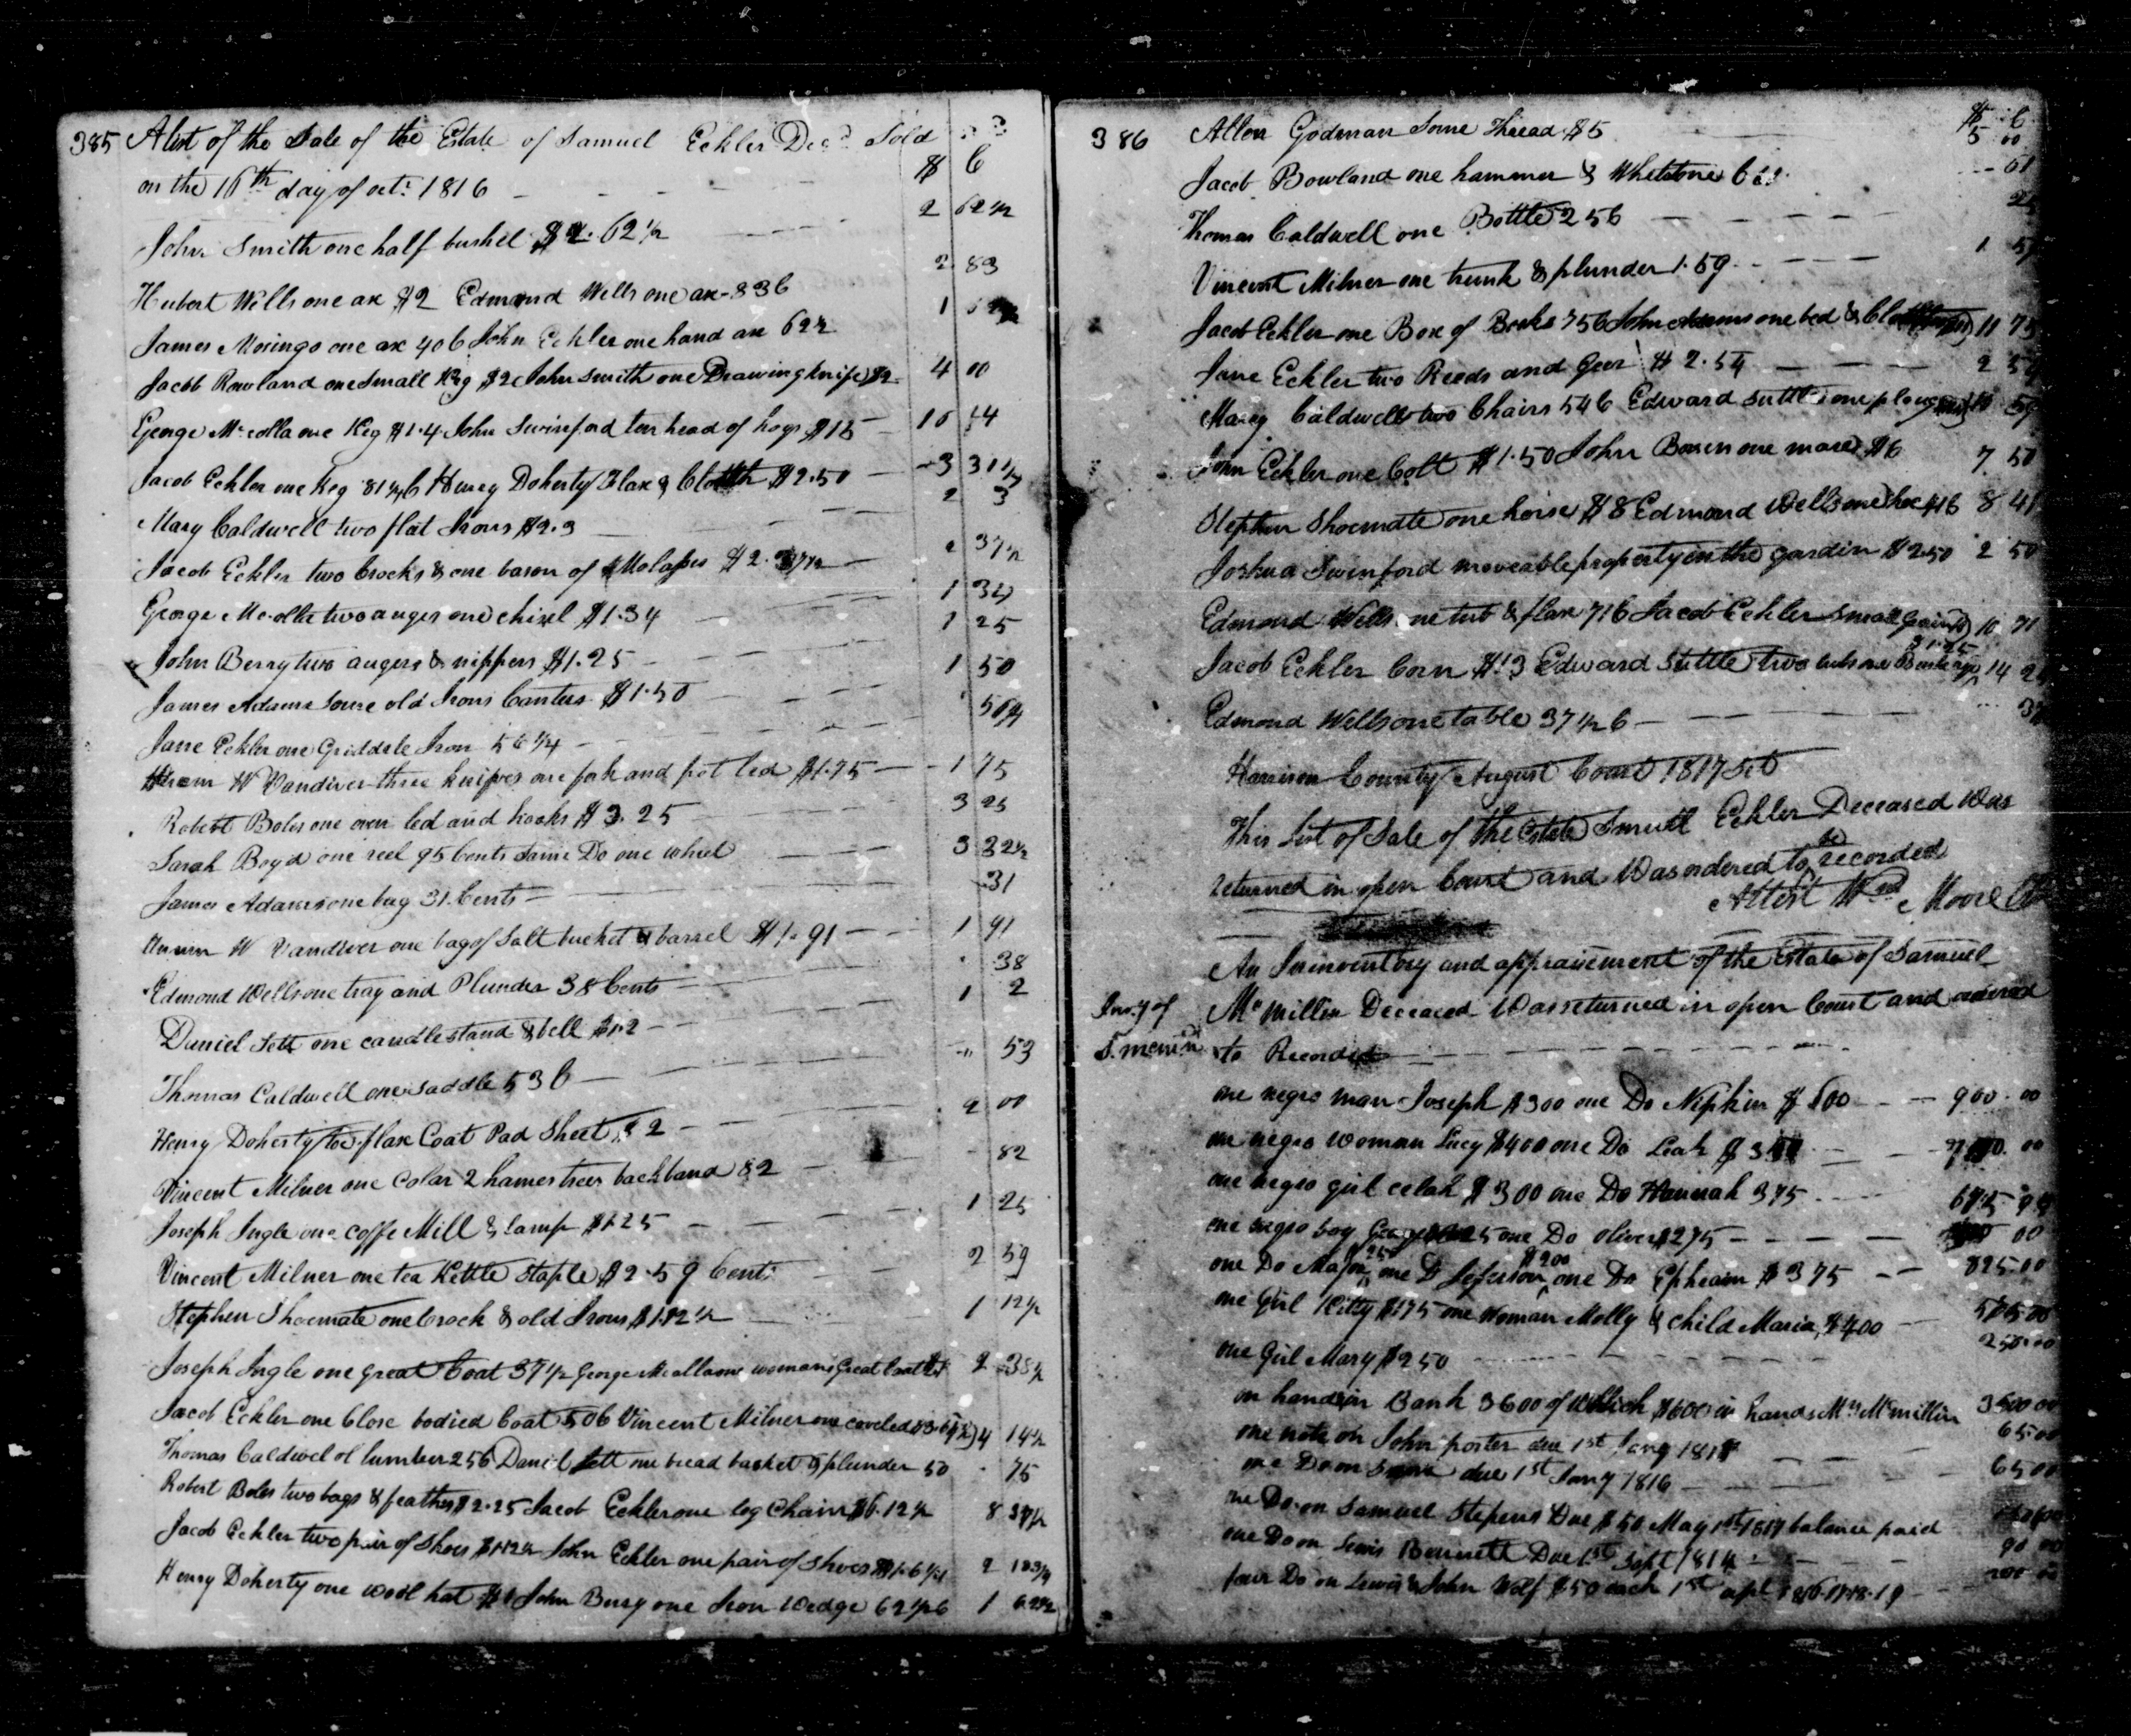 385 A list of the Sale of the Estate of Samuel Eckler Decd Sold
on the 16th day of oct: 1816 $ C
John Smith one half bushel $2.62½ 2 62½
Hubert Wells one ax $2 Edmond Wells one ax 83c 2 83
James Moringo one ax 40c John Eckler one hand ax 62½ 1
Jacob Rowland one Small Keg $2 John Smith one Drawing knife $2 4 00
George Mccolla one Keg $1.4 John Swinford ten head of hogs $15 16 14
Jacob Eckler one Keg 81¼c Henry Doherty Flax & Cloth $2.50 3 31¼
Mary Caldwell two flat Irons $2.3 2 3
Jacob Eckler two Crocks & one bason of Molasses $2.37½ 2 37½
George Mccolla two auges one chisel $1.34 1 34
John Berry two augers & nippers $1.25 1 25
James Adams Some old Irons Canters $1.50 1 50
Jane Eckler one Griddele Iron 56¼ 56¼
Hiram W Vandiver three knives one fork and pot led $1.75 1 75
Robert Boles one oven led and hooks $3.25 3 25
Sarah Boyd one reel 95 Cents Same Do one wheel 3 32½
James Adams one bag 31 Cents 31
Hiram W Vandiver one bag of Salt bucket & barrel $1.91 1 91
Edmond Wells one tray and Plunder 38 Cents 38
Daniel Sett one candlestand & bell $1.2 1 2
Thomas Caldwell one Saddle 53c 53
Henry Doherty tow flax Coat Pad Sheet $2 2 00
Vincent Milner one Colar 2 hames trees backband 82 82
Joseph Ingle one coffe Mill & lamp $1.25 1 25
Vincent Milner one tea Kettle Staple $2.59 Cents 2 59
Stephen Shoemate one Crock & old Irons $1.12½ 1 12½
Joseph Ingle one great Coat 37½ George Mccolla one womans Great Coat 2 38½
Jacob Eckler one Close bodied Coat 50c Vincent Milner one coveled $3.64½ 4 14½
Thomas Caldwel ol lumber 25c Daniel Sett one bread basket & plunder 50 75
Robert Boles two bags & feathers $2.25 Jacob Eckler one log Chain $6.12½ 8 37½
Jacob Eckler two pair of Shoes $1.12½ John Eckler one pair of Shoes $1.6¼ 2 18¾
Henry Doherty one wool hat $1 John Berry one Iron Wedge 62½c 1 62½
386 Allen Godman Some Thread $5 $ C 5 00
Jacob Bowland one hammer & Whetstone 61
Thomas Caldwell one Bottle 25c 25
Vincent Milner one trunk & plunder 1.59 1 59
Jacob Eckler one Box of Books 75c John Adams one bed & 11 75
Jane Eckler two Reeds and Geer $2.54 2 54
Marey Caldwell two Chairs 54c Edward Suttle one plow 59
John Eckler one Colt $1.50 John Bowen one mare $6 7 50
Stephen Shoemate one horse $8 Edmond Wells one hoe 41c 8 41
Joshua Swinford moveable property in the gardin $2.50 2 50
Edmond Wells one tub & flax 71c Jacob Eckler Small Grain 10 71
Jacob Eckler Corn $13 Edward Suttle two tubs one $1.25 14 25
Edmond Wells one table 37½c 37½
Harrison County August Court 1817 Sct
This List of Sale of the Estate Samuell Eckler Deceased Was
returned in open Court and Was ordered to be recorded
Attest Wm Moore Clk
An Ininventory and appraisement of the Estate of Samuel
Invy of McMillin Deceased Was returned in open Court and ordered
to Recorded
one negro man Joseph $300 one Do Nipkin $600 900.00
one negro woman Lucy $400 one Do Leah $350 00
one negro girl celah $300 one Do Hannah 375 675
one negro boy one Do oliver $275 00
one Do Major $250 one Do Jeferson $200 one Do Ephraim $375 825.00
one Girl Kitty $175 one Woman Molly & child Maria $400 575.00
one Girl Mary $250 250.00
on hand in Bank 3600 of Which $600 in hands Mrs Mcmillin 3600 00
one note on John porter due 1st Jany 1817 65.00
one Do on Same due 1st Jany 1816 65 00
one Do on Samuel Stepens Due $50 May 1st 1817 balance paid
one Do on Lewis Bennett Due 1st Sept 1814 90 00
four Do on Lewis & John Wolf $50 each 1st apl 1816.17.18.19 200 00